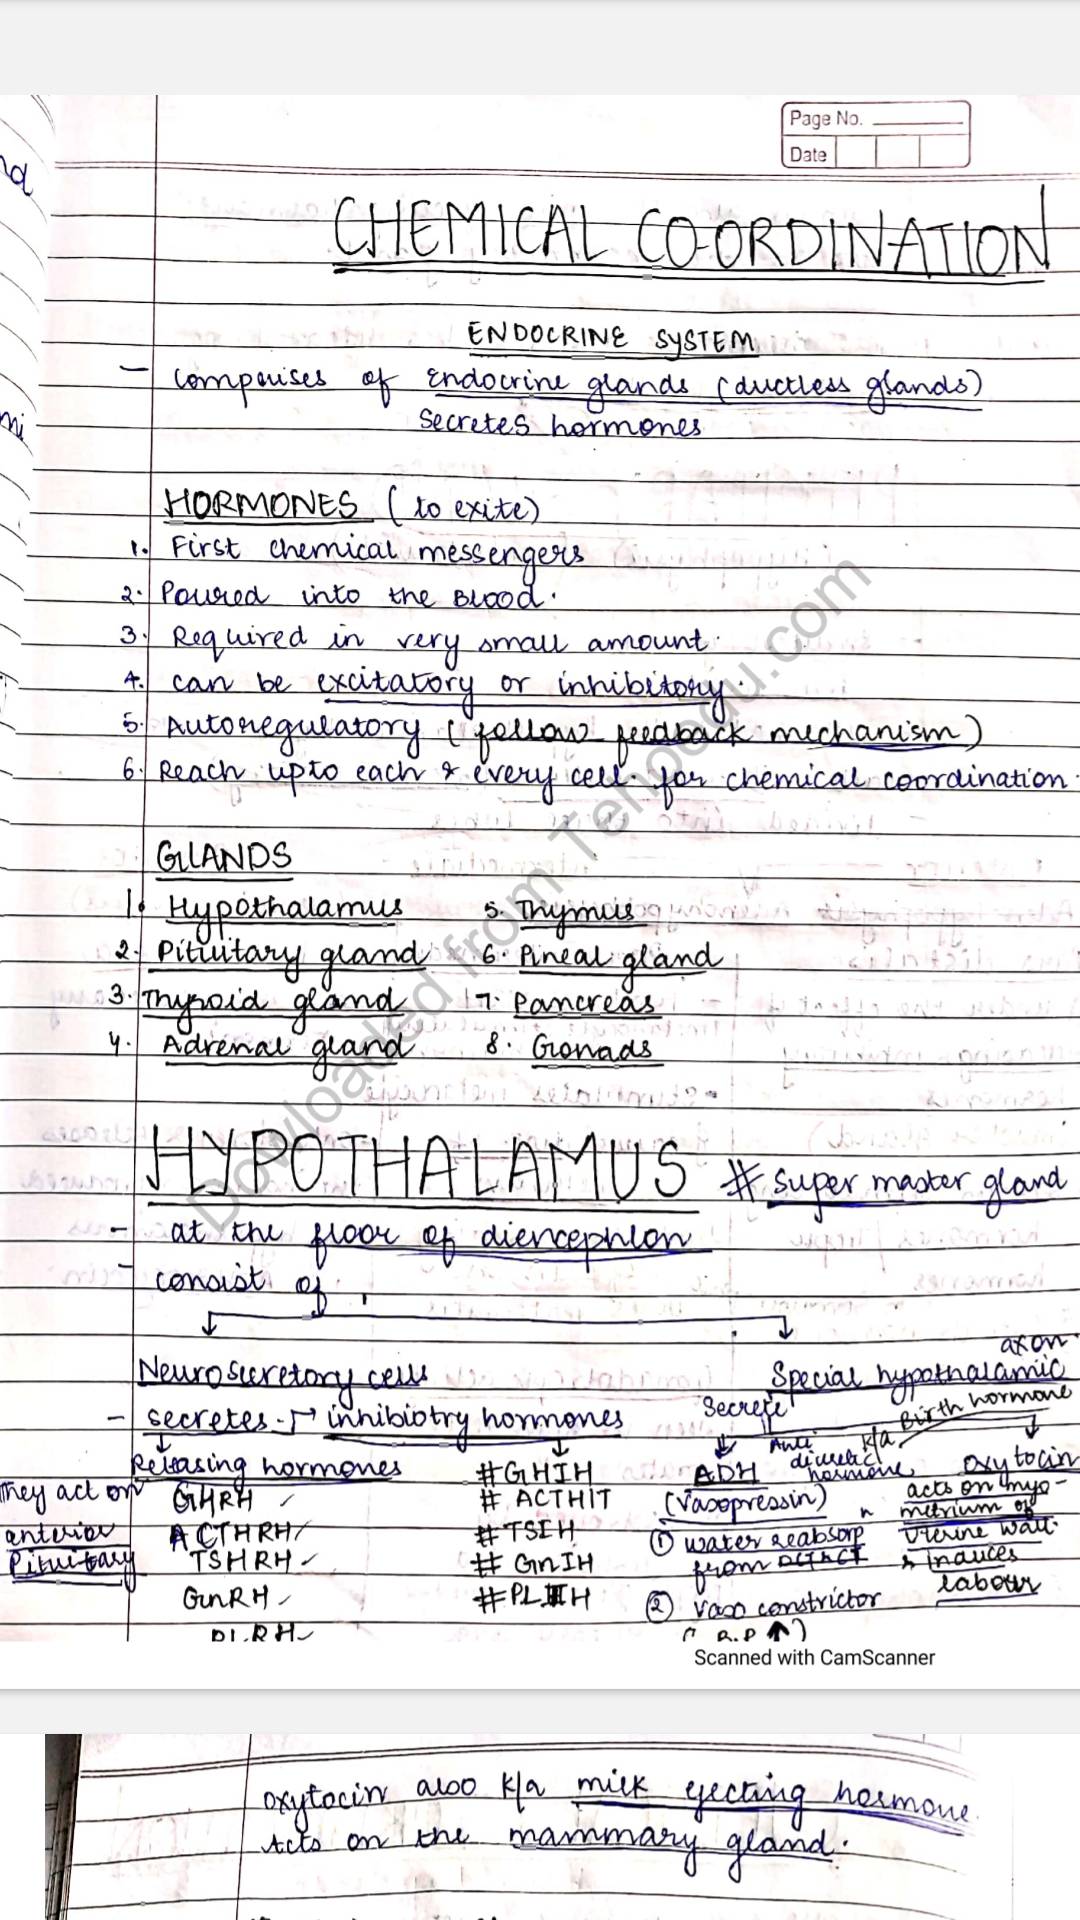 Page No.
Date
CHEMICAL CO-ORDINATION
ENDOCRINE SYSTEM
- comprises of endocrine glands (ductless glands)
secretes hormones
HORMONES (to exite)
1. First chemical messengers
2. Poured into the Blood.
3. Required in very small amount.
4. can be excitatory or inhibitory.
5. Autoregulatory (follow feedback mechanism)
6. Reach upto each & every cell for chemical coordination.
GLANDS
1. Hypothalamus 5. Thymus
2. Pituitary gland 6. Pineal gland
3. Thyroid gland 7. Pancreas
4. Adrenal gland 8. Gonads
HYPOTHALAMUS # super master gland
- at the floor of diencephlon
- consist of
Neurosecretory cells
- secretes inhibiotry hormones
Releasing hormones
They act on anterior Pituitary
GHRH
ACTHRH
TSHRH
GnRH
PLRH
#GHIH
# ACTHIT
#TSIH
# GnIH
#PLIH
Special hypothalamic axon
Secrete
ADH Anti diuretic hormone
(Vasopressin)
① water reabsorp from DCT & CT
② vaso constrictor
(B.P ↑)
k/a Birth hormone
oxytocin
acts on myo-
metrium of
Uterine wall.
& induces
labour
Dowloaded from Tehpoou.com
Scanned with CamScanner
oxytocin also k/a milk ejecting hormone.
Acts on the mammary gland.